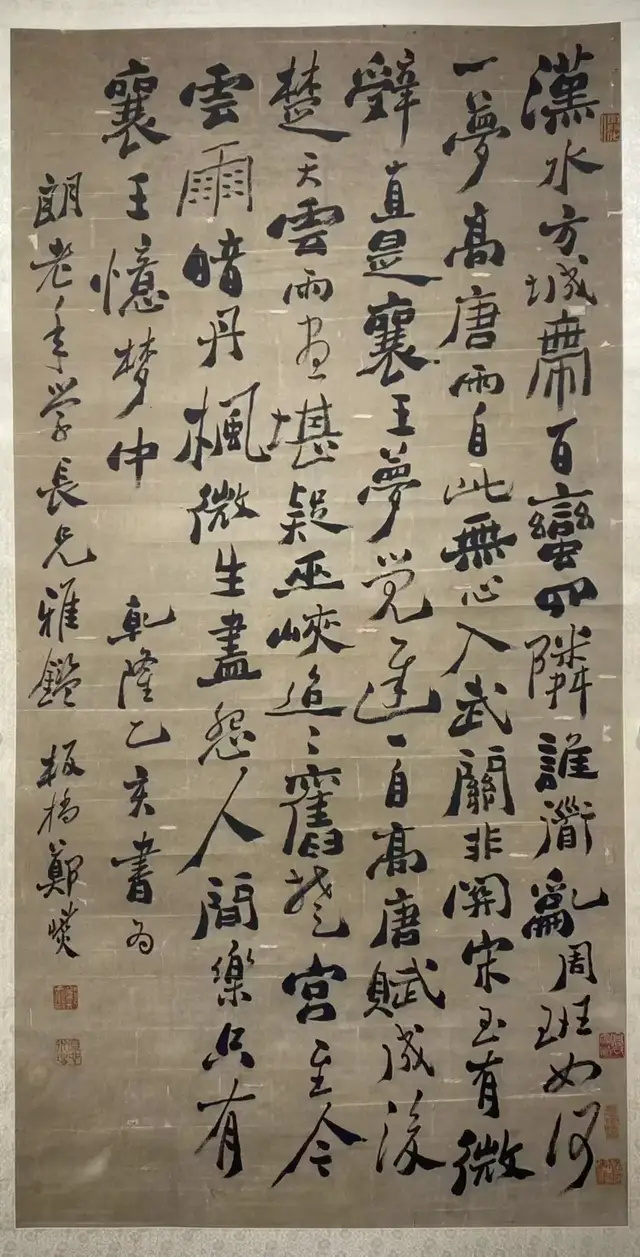 漢水方城帶百蠻四隣誰衜亂周班如何
一夢高唐雨自此無心入武關非關宋玉有微
辭直是襄王夢覺遲一自高唐賦成後
楚天雲雨盡堪疑巫峽迢〻舊楚宮至今
雲雨暗丹楓微生盡人間樂只有
襄王憶梦中 乾隆乙亥書為
朗老年學長兄雅鑑 板橋鄭燮